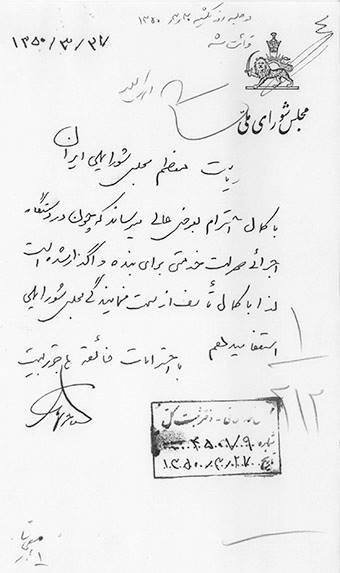 در جلسه روز یکشنبه
قرائت شد
۱۳۵۰/۳/۲۷
مجلس شورای ملی
ریاست معظم مجلس شورای ملی ایران
با کمال احترام بعرض عالی میرساند که چون در دستگاه
اجرائی مملکت خدمتی برای بنده واگذار شده است
لذا با کمال تأسف از سمت نمایندگی مجلس شورای ملی
استعفا میدهم
با احترامات فائقه
دفتر ثبت کل
شماره
تاریخ ۱۳۵۰/۳/۲۷